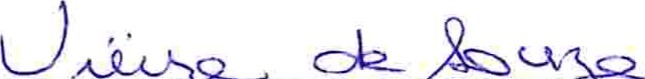 Vieira de Souza